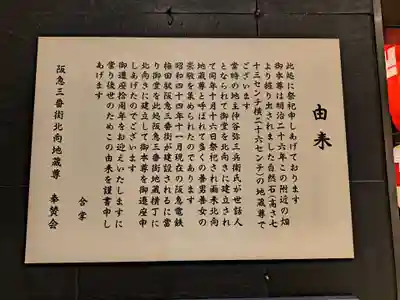 由来
此処に祭祀申しあげております
御本尊は明治二十六年この附近の畑
より掘り出されました自然石(高さ七
十三センチ横二十六センチ)の地蔵尊で
ございます
当時の地主仲谷弥三兵衛氏が世話人
となられて御堂を北向きに建立され
て同年十月十六日祭祀され爾来北向
地蔵尊と呼ばれて多くの善男善女の
崇敬を集められたのであります
昭和四十四年十一月現在の阪急電鉄
梅田駅阪急三番街が建設されるに当
り御堂を此処阪急三番街地蔵横丁に
北向きに建立して御本尊を御遷座申
しあげたのでございます
御遷座拾周年をお迎えいたしますに
當り後世のためこの由来を謹書申し
あげます
合掌
阪急三番街北向地蔵尊 奉賛会